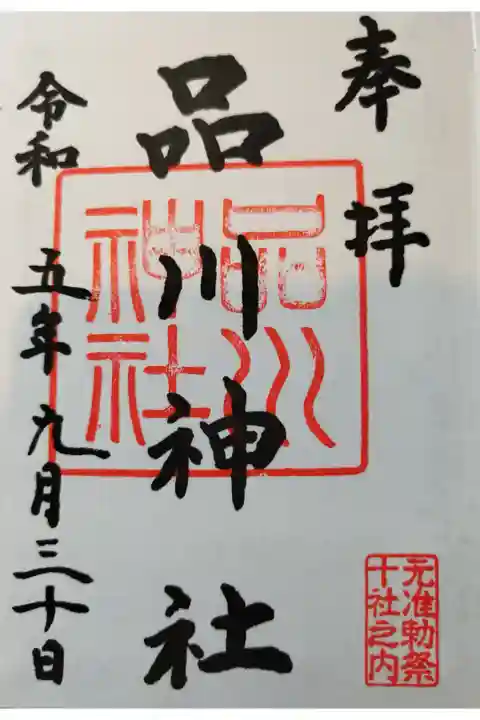 奉拝
品川神社
品川
神社
令和 五年 九月三十日
元准勅祭
十社之内